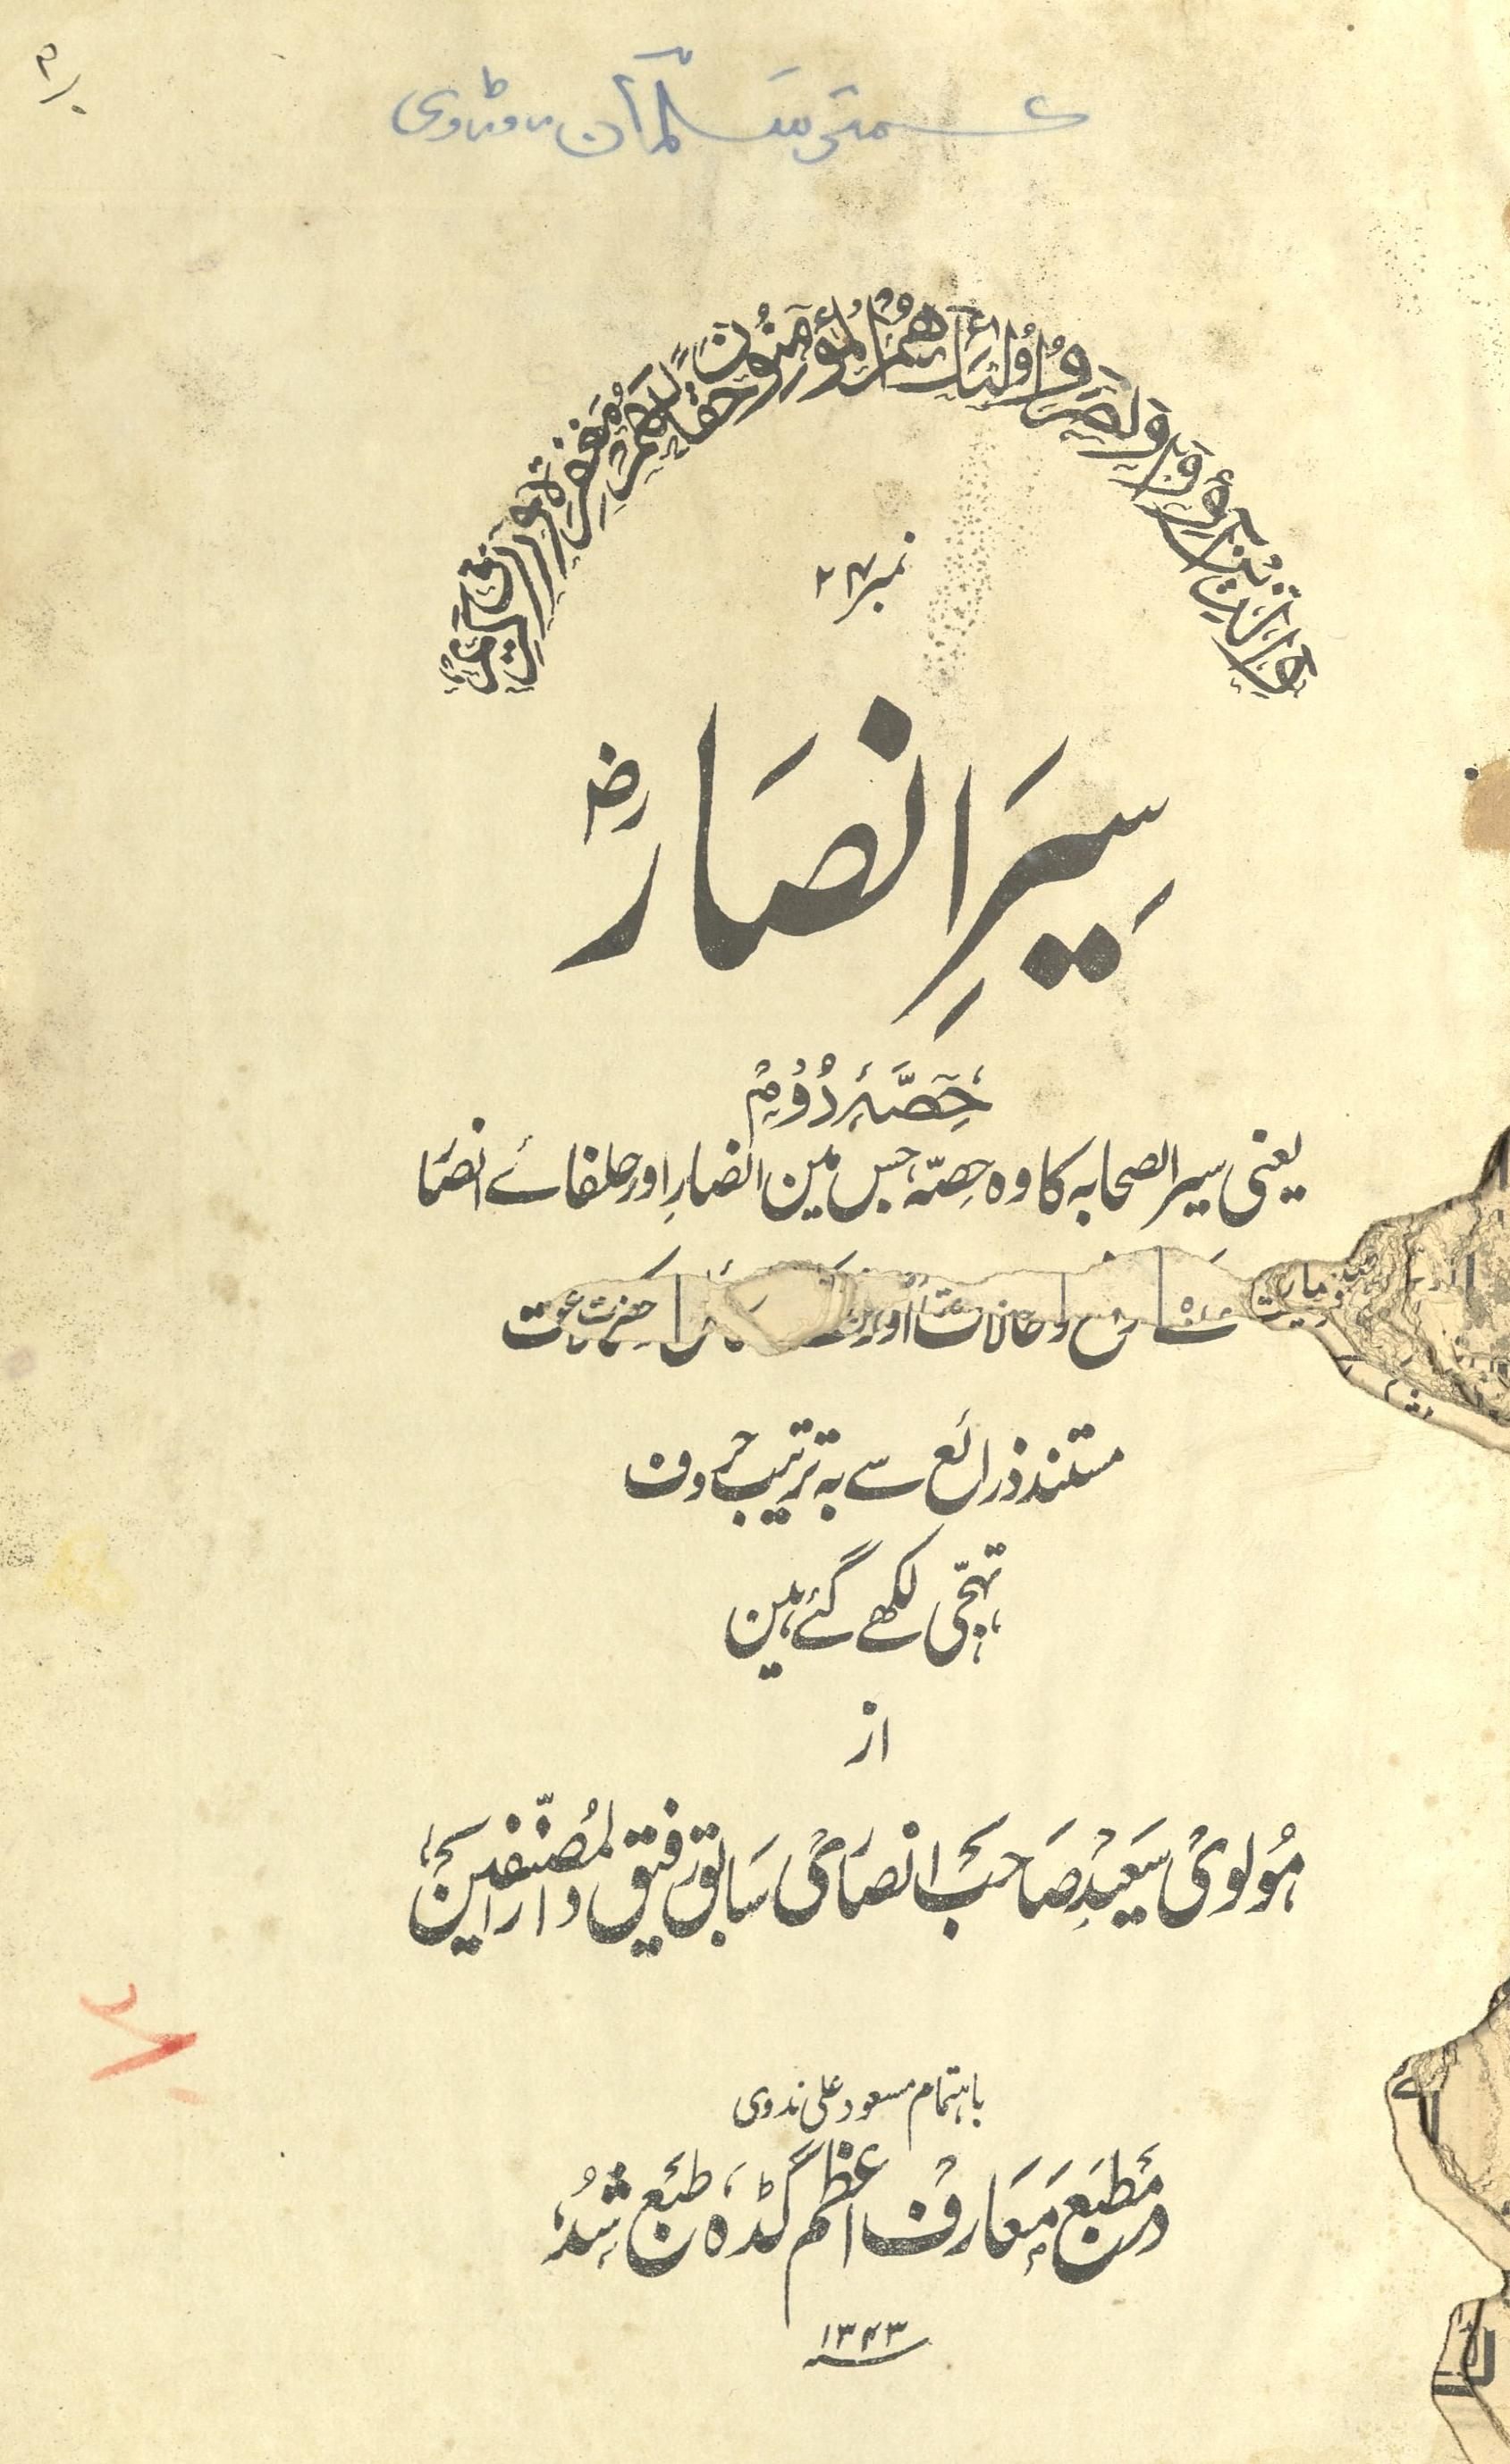 والذين آووا ونصروا أولئك هم المؤمنون حقا لهم مغفرة ورزق كريم
نمبر ۲۷
سِیَرِ انصَار رضہ
حِصَّۂ دُوُم
یعنی سیر الصحابہ کا وہ حصّہ جس مین انصارِ اور حلفائے انصَار
حالات اور
مستند ذرائع سے بہ ترتیب حروف
تہجّی لکھے گئے ہین
از
مولوی سَعید صَاحب انصَاری سَابق رفیق دار المُصنّفین
باہتمام مسعود علی ندوی
در مطبَع مَعَارف اعظم گڈہ طبع شد
۱۳۴۳